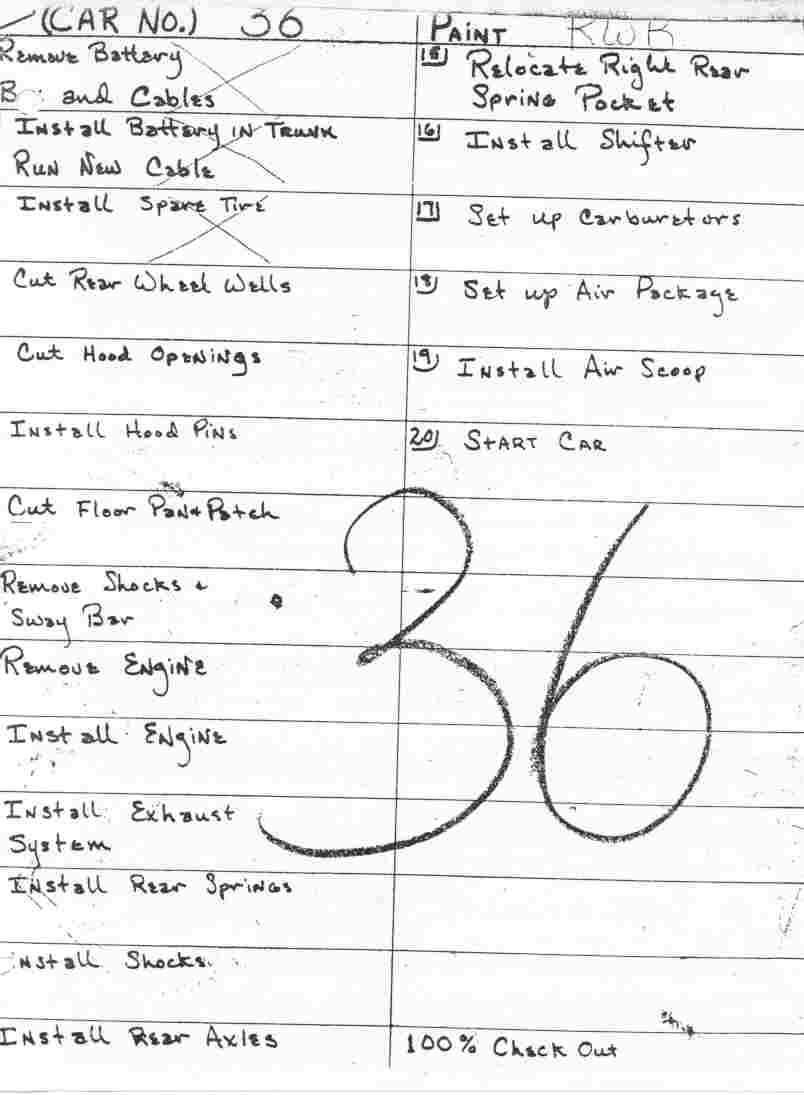 (CAR NO.) 36
Remove Battery
B and Cables
Install Battery in Trunk
Run New Cable
Install Spare Tire
Cut Rear Wheel Wells
Cut Hood Openings
Install Hood Pins
Cut Floor Pan + Patch
Remove Shocks +
Sway Bar
Remove Engine
Install Engine
Install Exhaust
System
Install Rear Springs
Install Shocks.
Install Rear Axles
PAINT
15) Relocate Right Rear
Spring Pocket
16) Install Shifter
17) Set up Carburetors
18) Set up Air Package
19) Install Air Scoop
20) START CAR
36
100% Check Out